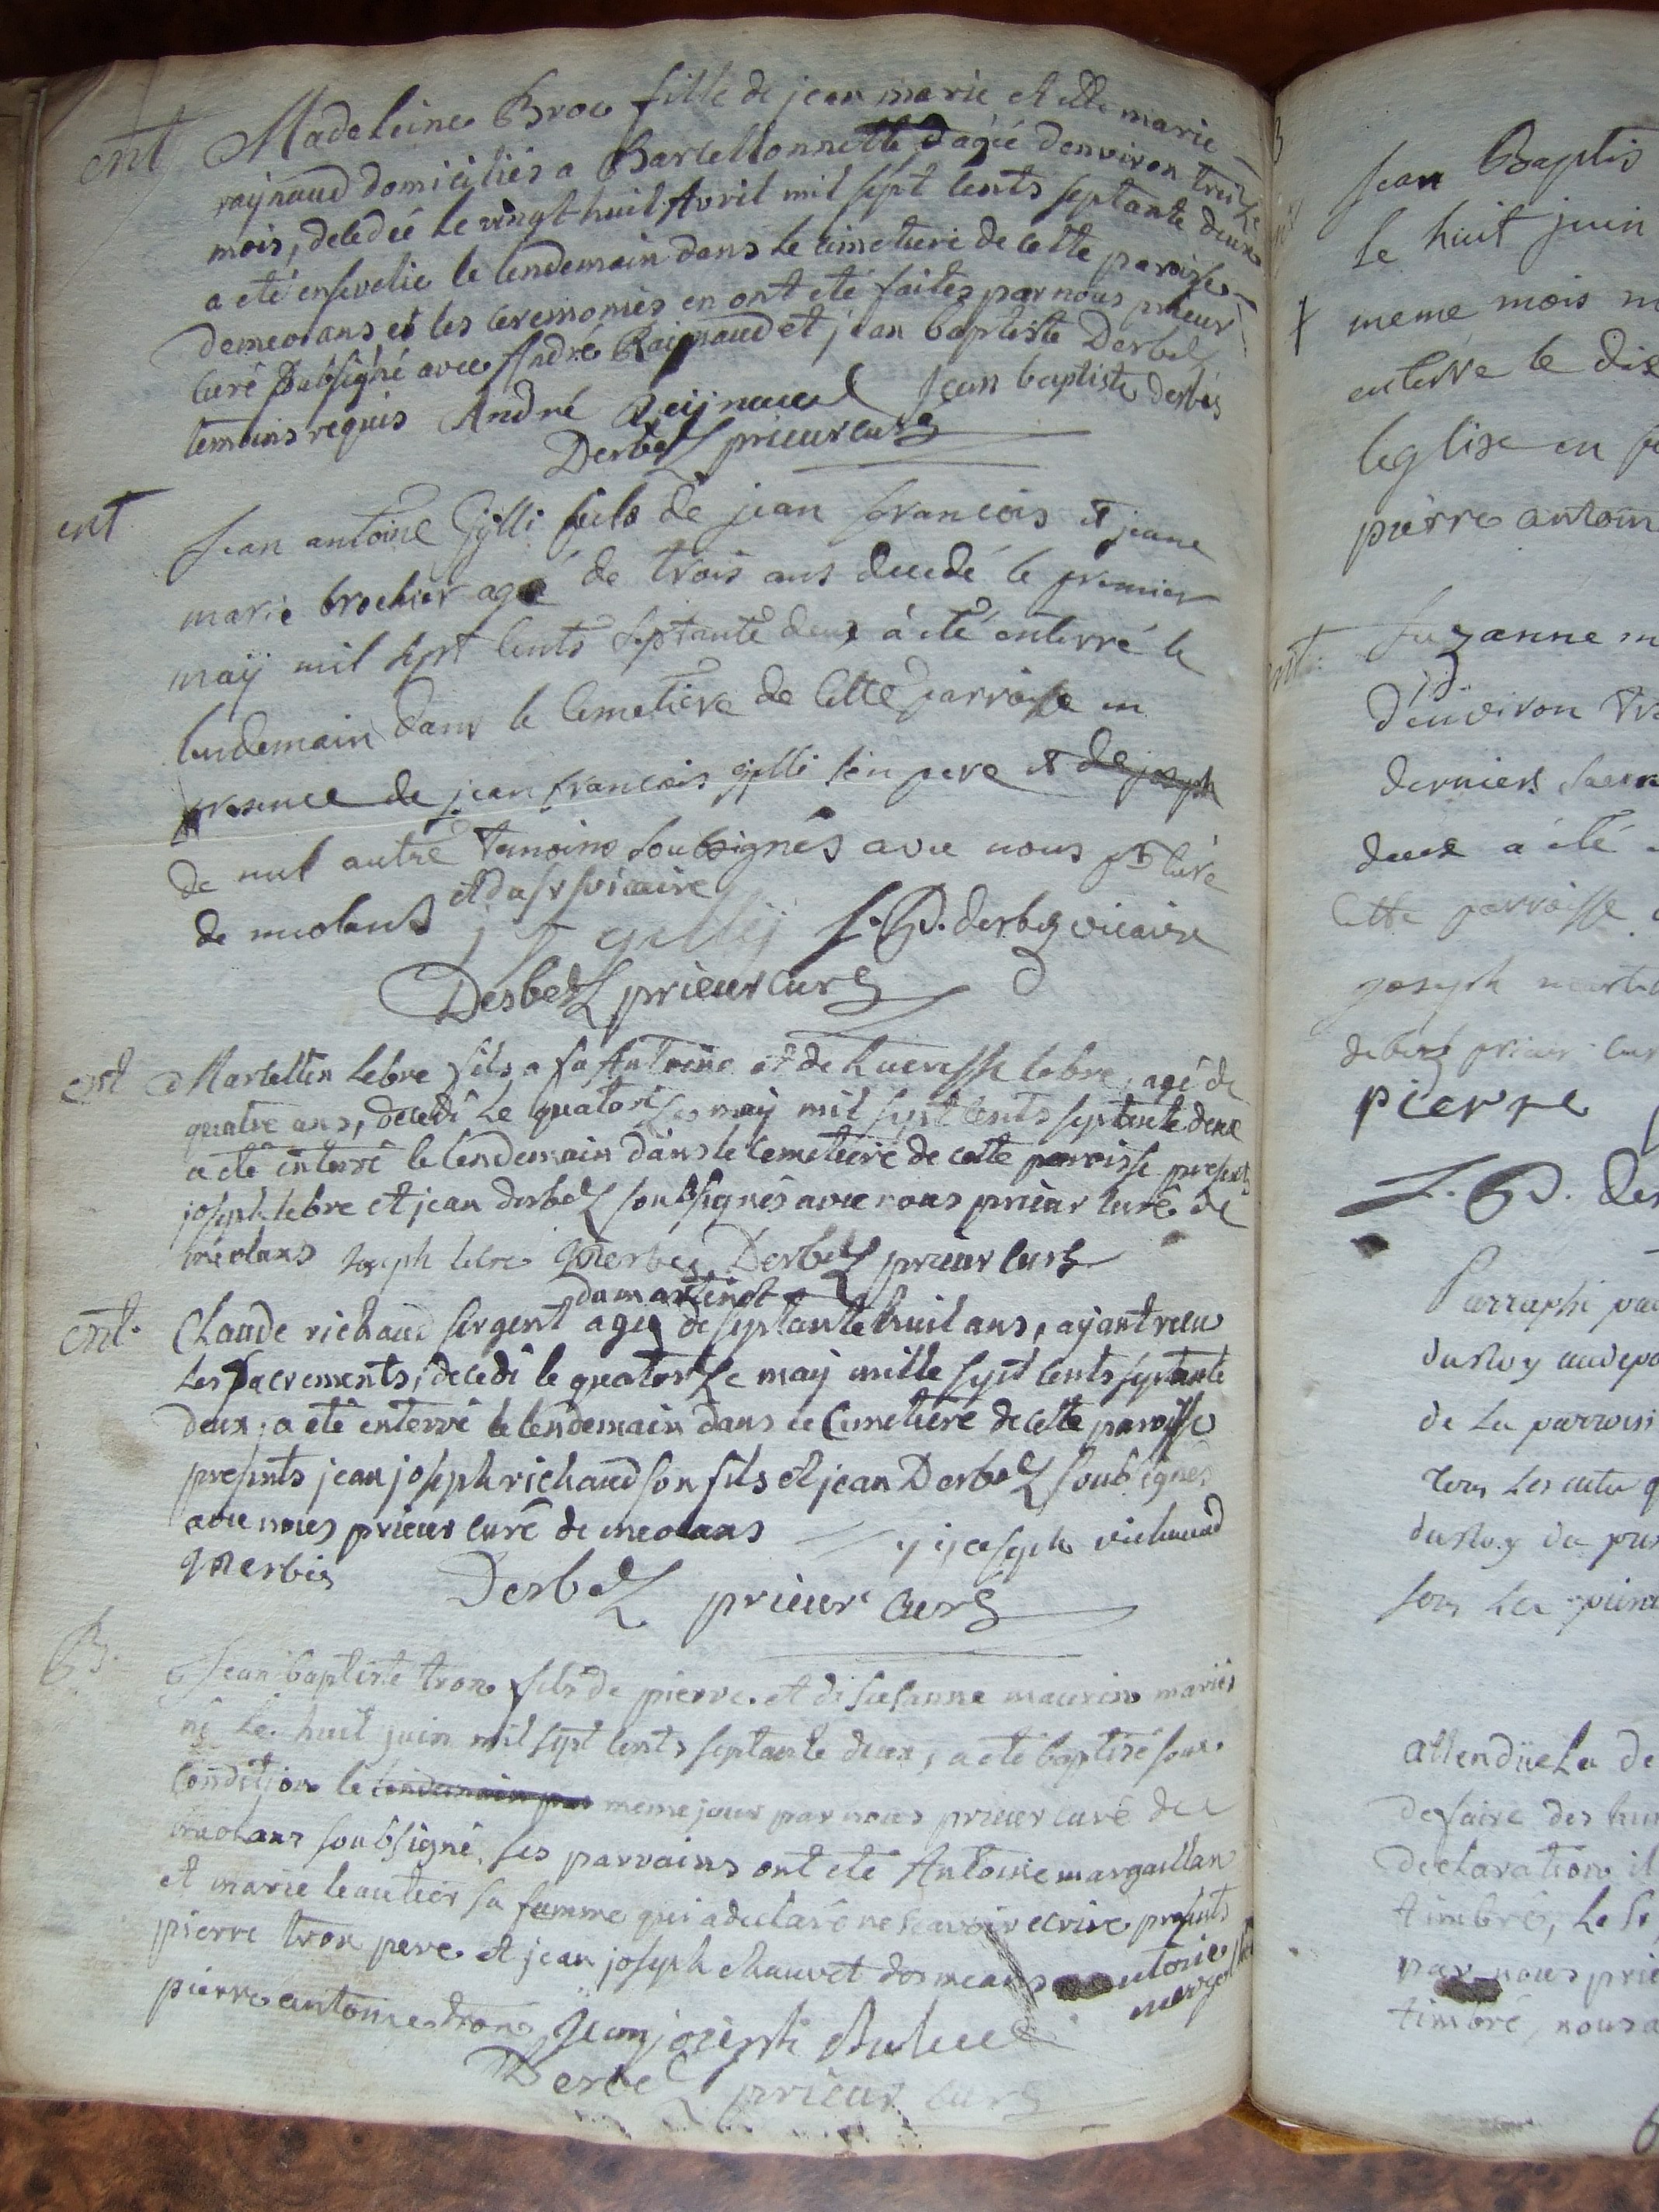 ent Madeleine Broc fille de jean marie et de marie
raynaud domiciliés a Barcellonnette, d'agée d'environ treize
mois, decedée le vingt huit Avril mil sept cents septante deux
a eté ensevelie le lendemain dans le cimetiere de cette paroisse
de meolans et les ceremonies en ont eté faites par nous prieur
curé soubsigné avec André Raignaud et jean baptiste Derbez
temoins requis André Reijnaud Jean baptiste derbes
Derbez prieur curé
ent Jean antoine Gilli fils de jean francois et jeane
marie brochier agé de trois ans decedé le premier
maÿ mil sept cents septante deux à été enterré le
lendemain dans le cemetiere de cette parroisse en
presence de jean francois gilli son pere et de joseph
de nul autre temoins soubsignés avec nous pr curé
et du sr vicaire
de meolans j f gillij J. B. derbez vicaire
Derbez prieur curé
ent Marcellin Lebre fils a fu Antoine et de Lucresse lebre, agé de
quatre ans, decedé le quatorse may mil sept cents septante deux
a eté enterré le lendemain dans le cemetiere de cette paroisse presents
joseph lebre et jean derbez soubsignés avec nous prieur curé de
méolans Joseph lebre J Derbes Derbez prieur curé
du martinet
ent. Claude richaud sergent agé de septante huit ans, ayant receu
les sacrements, decedé le quatorze may mille sept cents septante
deux, a eté enterré le lendemain dans le cemetiere de cette paroisse
presents jean joseph richaud son fils et jean Derbez soubsignés
avec nous prieur curé de meolans j joseph richaud
J Derbés Derbez prieur curé
B. Jean baptiste tron fils de pierre et de susanne maurin mariés
né le huit juin mil sept cents septante deux, a eté baptisé sous
condition le lendemain par meme jour par nous prieur curé de
meolans soubsigné, ses parrains ont eté Antoine margaillan
et marie leautier sa femme qui a declaré ne scavoir ecrire presents
pierre tron pere et jean joseph chauvet de meolans antoine
pierre antoine tron Jean joseph
Derbez prieur curé
Jean Baptis
le huit juin
meme mois
enterré le dix
leglise en
pierre antoin
ent: Suzanne
d'environ
derniers
deux a été
cette parroisse
joseph
prieur cur
pierre
J. B. der
Parraphé par
du Roy
de la parroisse
tous les
du Roy
sous les
attendüe la de
de faire des
declaration il
timbré, le Sr
par nous prie
timbré, nous a